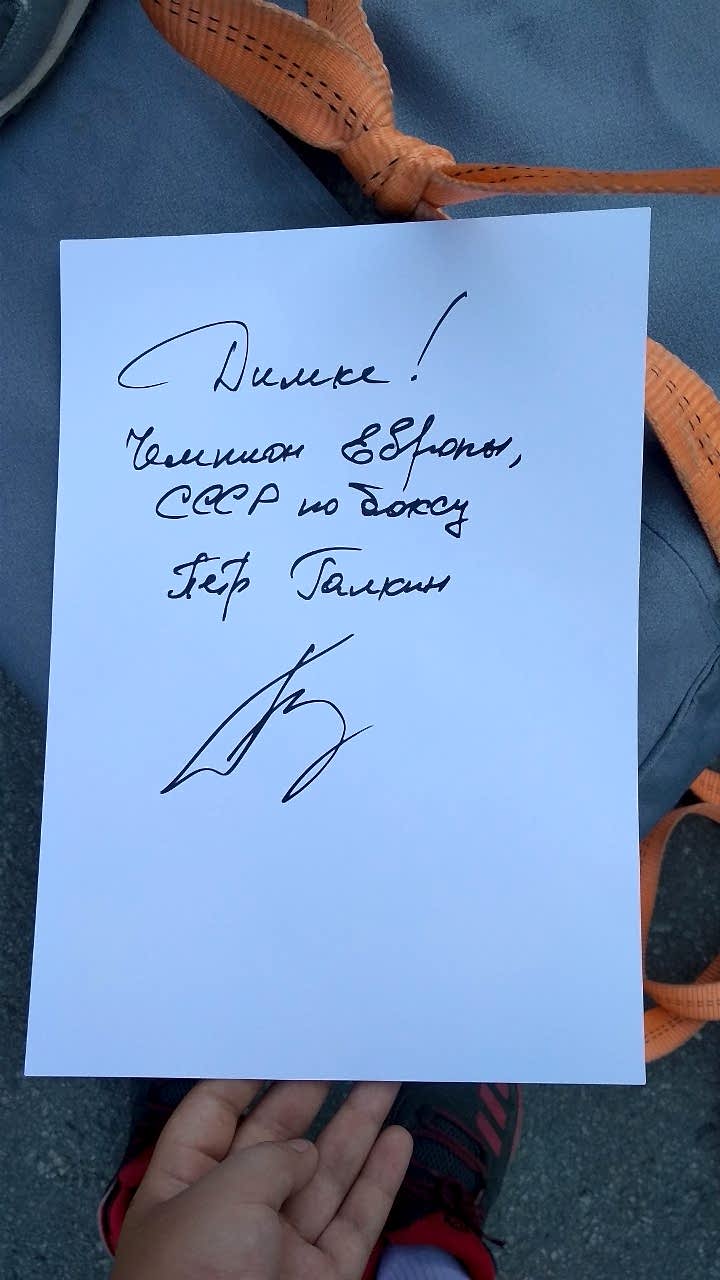 Димке!
Чемпион Европы,
СССР по боксу
Пётр Галкин